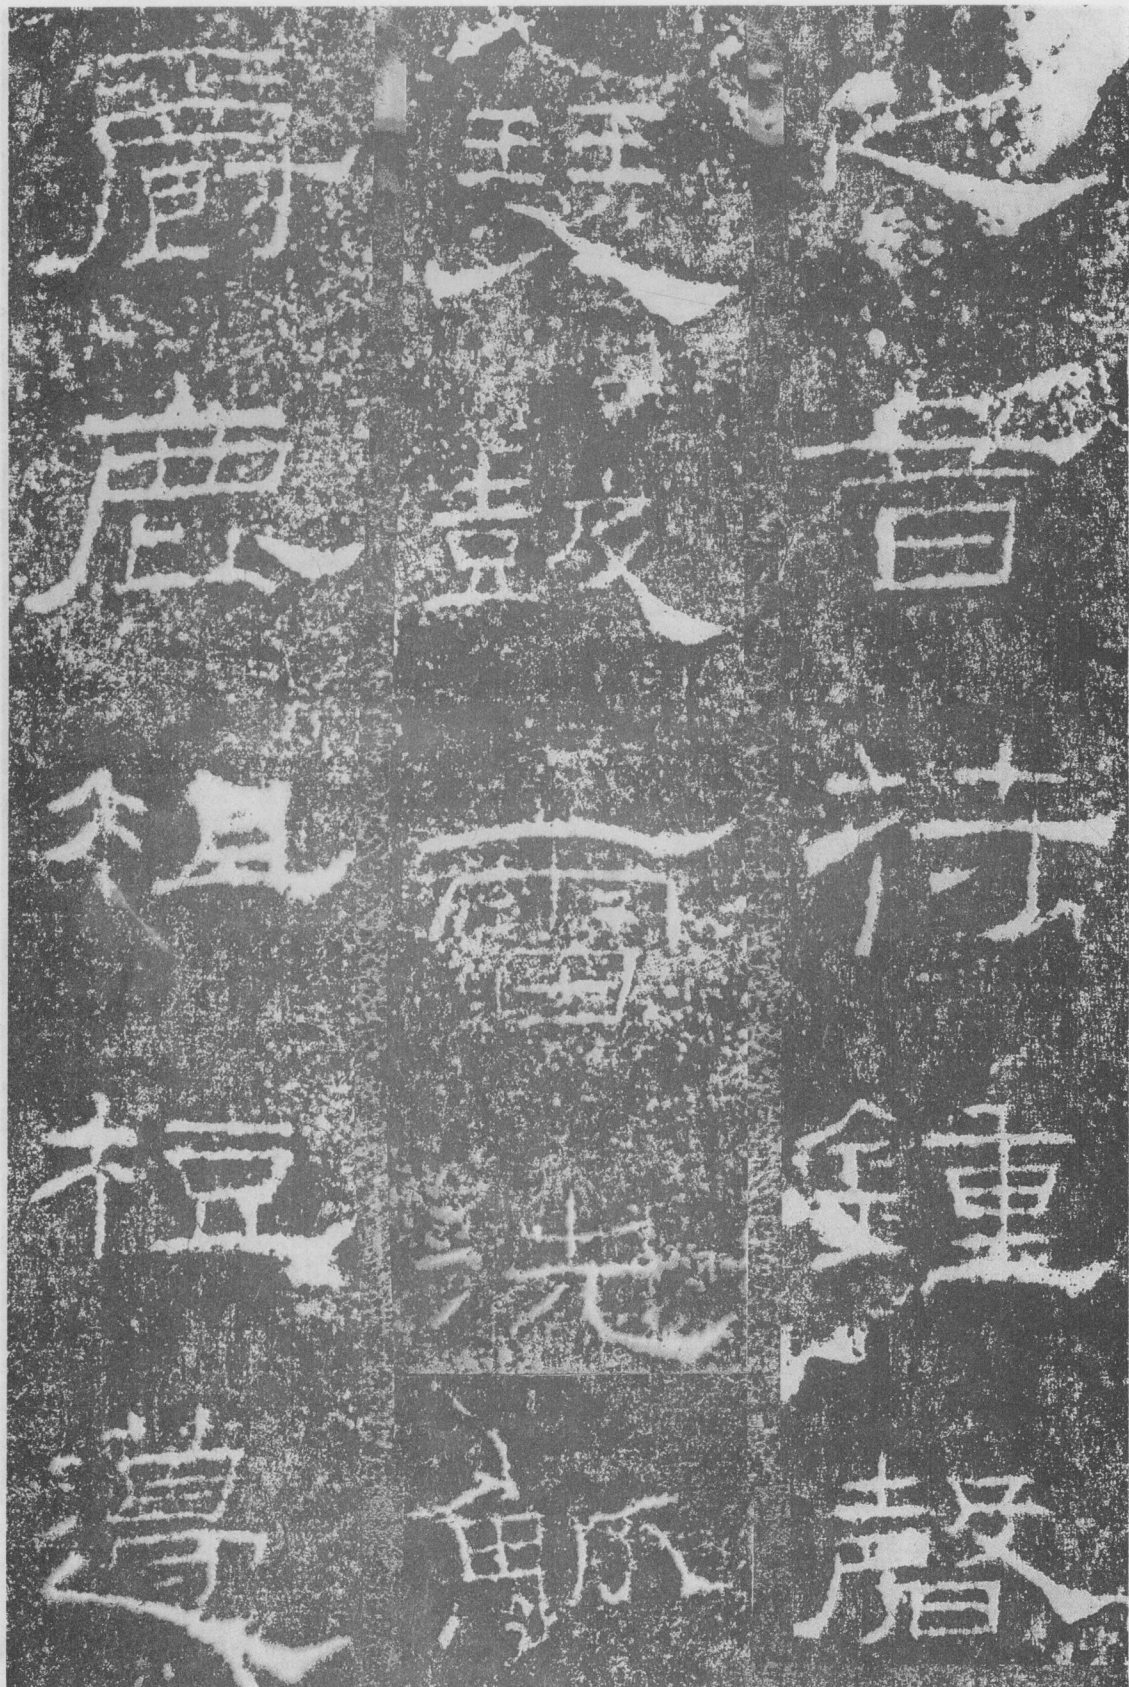 之音符鍾磬
瑟鼓雷洗觚
爵鹿柤梪遵